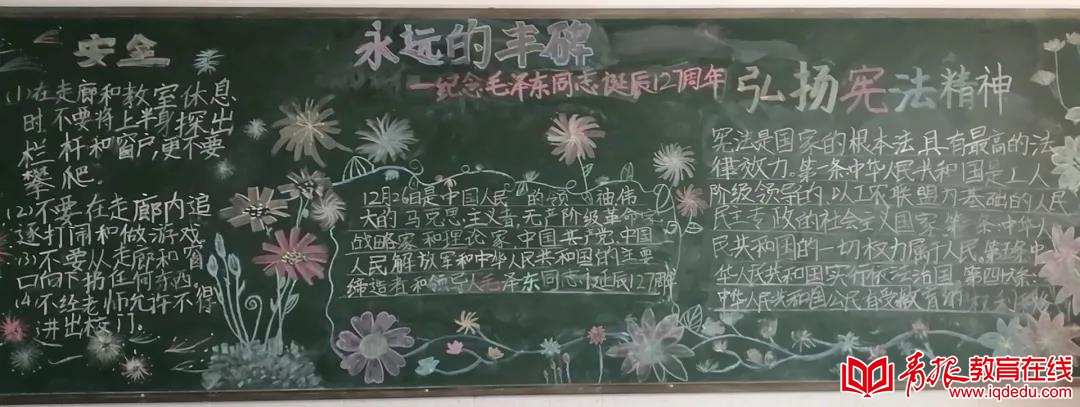 安全
(1)在走廊和教室休息
时,不要将上半身探出
栏杆和窗户,更不要
攀爬。
(2)不要在走廊内追
逐打闹和做游戏
(3)不要从走廊和窗
口向下扔任何东西。
(4)不经老师允许不得
进出校门。
永远的丰碑
—纪念毛泽东同志诞辰127周年
12月26是中国人民的领袖伟
大的马克思主义者,无产阶级革命家
战略家和理论家,中国共产党,中国
人民解放军和中华人民共和国的主要
缔造者和领导人毛泽东同志诞辰127周
弘扬宪法精神
宪法是国家的根本法,具有最高的法
律效力。第一条中华人民共和国是工人
阶级领导的,以工农联盟为基础的人民
民主专政的社会主义国家,第二条:中华人
民共和国的一切权力属于人民。第五条中
华人民共和国实行依法治国,第四十六条:
中华人民共和国公民有受教育的
青报教育在线
www.iqdedu.com